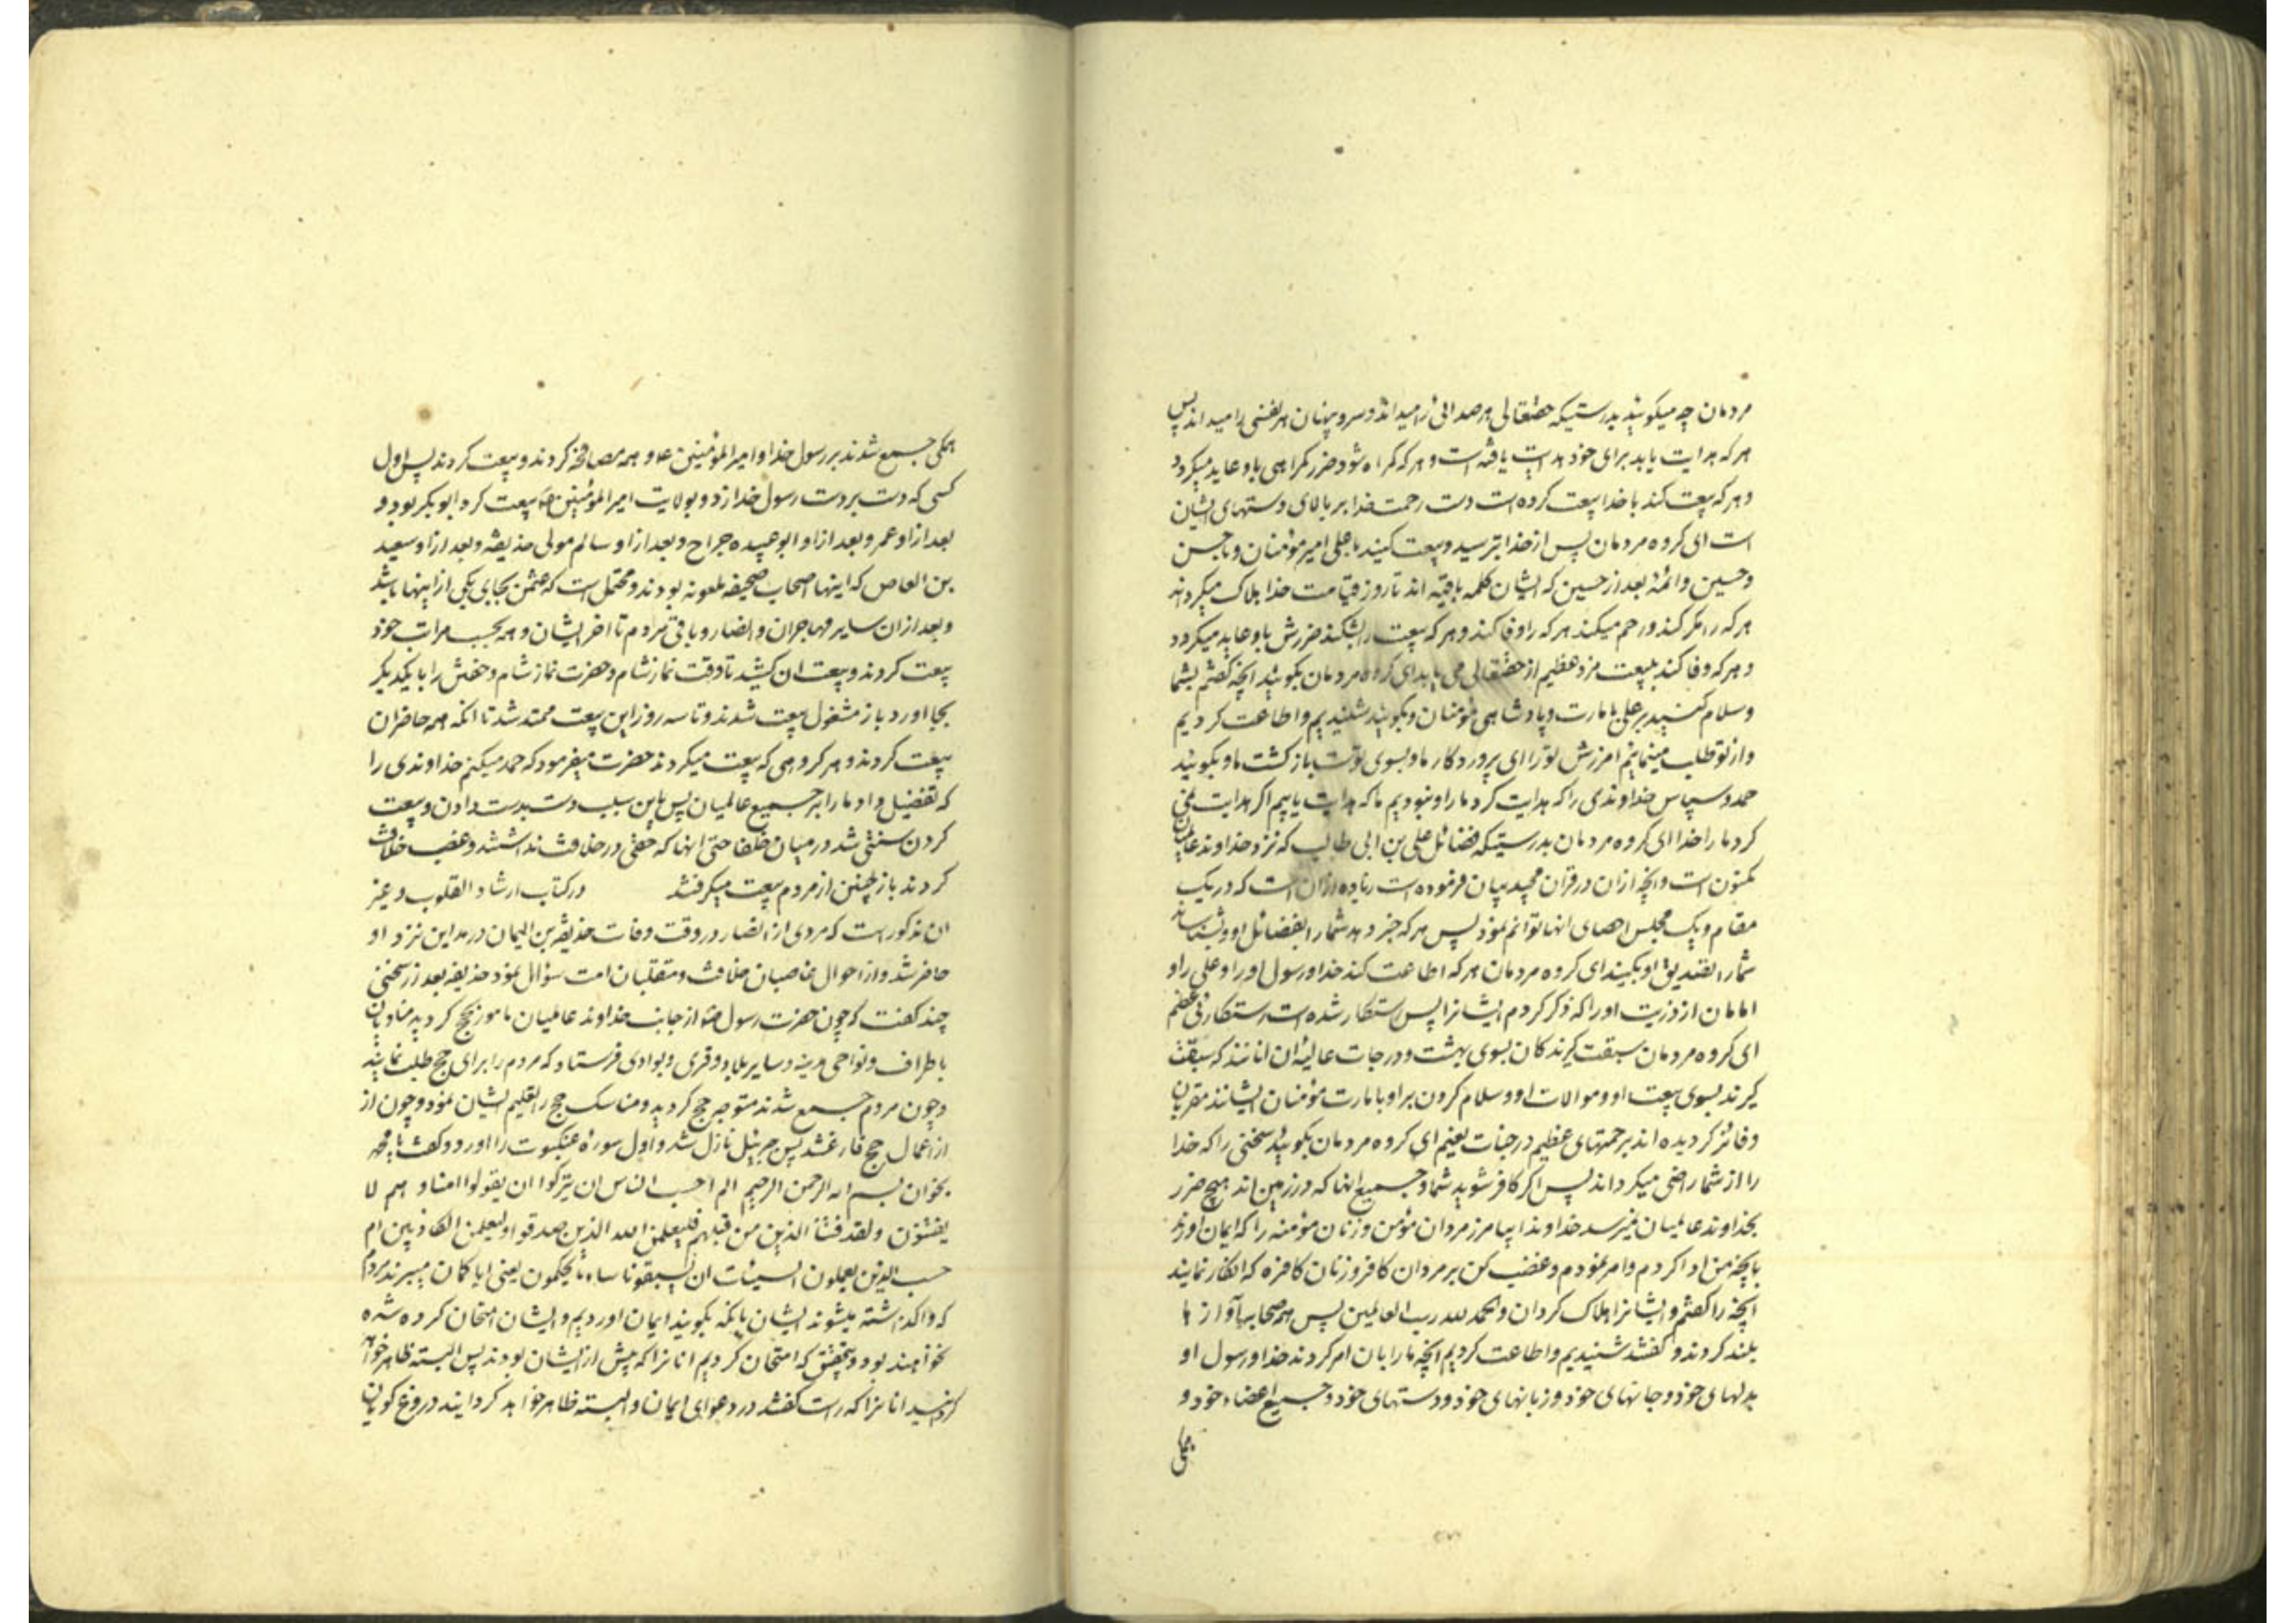 مردمان چه میکوئید بدرستیکه حقتعالی هر صدائی را میداند و سر و پنهان هر نفسی را میداند پس
هر که هدایت یابد برای خود هدایت یافته است و هر که کمراه شود ضرر کمراهی باو عاید میکردد
و هر که بیعت کند با خدا بیعت کرده است دست رحمت خدا بر بالای دستهای ایشان
است ای کروه مردمان پس از خدا بترسید و بیعت کنید با علی امیر مؤمنان و با حسن
و حسین و ائمهٔ بعد از حسین که ایشان کلمه باقیه اند تا روز قیامت خدا هلاک میکرداند
هر که را مکر کند و رحم میکند هر که را وفا کند و هر که بیعت را بشکند ضررش باو عاید میکردد
و هر که وفا کند ببیعت مزد عظیم از حقتعالی می یابد ای کروه مردمان بکوئید انچه کفتم بشما
و سلام کنید بر علی بامارت و پادشاهی مؤمنان و بکوئید شنیدیم و اطاعت کردیم
و از تو طلب مینمائیم امرزش تو را ای پروردکار ما و بسوی توست بازکشت ما و بکوئید
حمد و سپاس خداوندی را که هدایت کرد ما را و نبودیم ما که هدایت یابیم اکر هدایت نمی
کرد ما را خدا ای کروه مردمان بدرستیکه فضائل علی بن ابی طالب که نزد خداوند عالمیان
مکنون است و انچه ازان در قران مجید بیان فرموده است زیاده ازان است که در یک
مقام و یک مجلس احصای انها توانم نمود پس هر که خبر دهد شما را بفضائل او و بشناساند
شما را تصدیق او بکنید ای کروه مردمان هر که اطاعت کند خدا و رسول او را و علی را و
امامان از ذریت او را که ذکر کردم ایشانرا پس رستکار شده است رستکاری عظیم
ای کروه مردمان سبقت کیرندکان بسوی بهشت و درجات عالیهٔ ان انانند که سبقت
کیرند بسوی بیعت او و موالات او و سلام کردن بر او بامارت مؤمنان ایشانند مقربان
و فائز کردیده اند برحمتهای عظیم در جنات نعیم ای کروه مردمان بکوئید سخنی را که خدا
را از شما راضی میکرداند پس اکر کافر شوید شما و جمیع انها که در زمین اند هیچ ضرر
بخداوند عالمیان نمیرسد خداوندا بیامرز مردان مؤمن و زنان مؤمنه را که ایمان اورند
بانچه من ادا کردم و امر نمودم و غضب کن بر مردان کافر و زنان کافره که انکار نمایند
انچه را کفتم و ایشانرا هلاک کردان و الحمد لله رب العالمین پس همه صحابه آوازها
بلند کردند و کفتند شنیدیم و اطاعت کردیم انچه ما را بان امر کردند خدا و رسول او
بدلهای خود و جانهای خود و زبانهای خود و دستهای خود و جمیع اعضاء خود و
همکی جمیع شدند بر رسول خدا و امیر المؤمنین ع و همه مصافحه کردند و بیعت کردند پس اول
کسی که دست بر دست رسول خدا زد و بولایت امیر المؤمنین بیعت کرد ابو بکر بود و
بعد از او عمر و بعد از او ابو عبیده جراح و بعد از او سالم مولی حذیفه و بعد از او سعید
بن العاص که اینها اصحاب صحیفه ملعونه بودند و محتمل است که عثمن بجای یکی از اینها باشد
و بعد ازان سایر مهاجران و انصار و باقی مردم تا اخر ایشان و همه بحسب مراتب خود
بیعت کردند و بیعت ان کشید تا وقت نماز شام و حضرت نماز شام و خفتن را با یکدیکر
بجا اورد باز مشغول بیعت شدند و تا سه روز این بیعت ممتد شد تا انکه همه حاضران
بیعت کردند و هر کروهی که بیعت میکردند حضرت میفرمود که حمد میکنم خداوندی را
که تفضیل داد ما را بر جمیع عالمیان پس باین سبب دست بدست دادن و بیعت
کردن سنتی شد در میان خلفا حتی انها که حقی در خلافت نداشتند و غصب خلافت
کردند باز چنین از مردم بیعت میکرفتند در کتاب ارشاد القلوب و غیر
ان مذکور است که مردی از انصار در وقت وفات حذیفة بن الیمان در مداین نزد او
حاضر شد و از احوال غاصبان خلافت و متقلبان امت سؤال نمود حذیفه بعد از سخنی
چند کفت که چون حضرت رسول از جانب خداوند عالمیان مامور بحج کردید منادیان
باطراف و نواحی مدینه و سایر بلاد و قری و بوادی فرستاد که مردم را برای حج طلب نمایند
و چون مردم جمیع شدند متوجه حج کردید و مناسک حج را تعلیم ایشان نمود و چون از
از اعمال حج فارغ شد پس جبرئیل نازل شد و اول سورهٔ عنکبوت را اورد و کفت یا محمد
بخوان بسم الله الرحمن الرحیم الم احسب الناس ان یترکوا ان یقولوا امنا و هم لا
یفتنون و لقد فتنا الذین من قبلهم فلیعلمن الله الذین صدقوا و لیعلمن الکاذبین ام
حسب الذین یعملون السیئات ان یسبقونا ساء ما یحکمون یعنی ایا کمان میبرند مردم
که واکذاشته میشوند ایشان بانکه بکویند ایمان اوردیم و ایشان امتحان کرده شده
نخواهند بود و بتحقیق که امتحان کردیم انانرا که پیش از ایشان بودند پس البته ظاهر خواهد
کردانید انانرا که راست کفتند در دعوای ایمان و البته ظاهر خواهد کردانید دروغ کویان